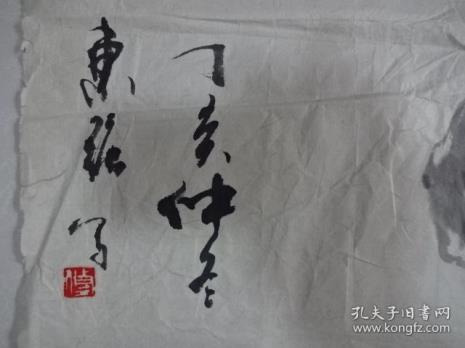 丁亥仲冬
惠强写
孔夫子旧书网
www.kongfz.com